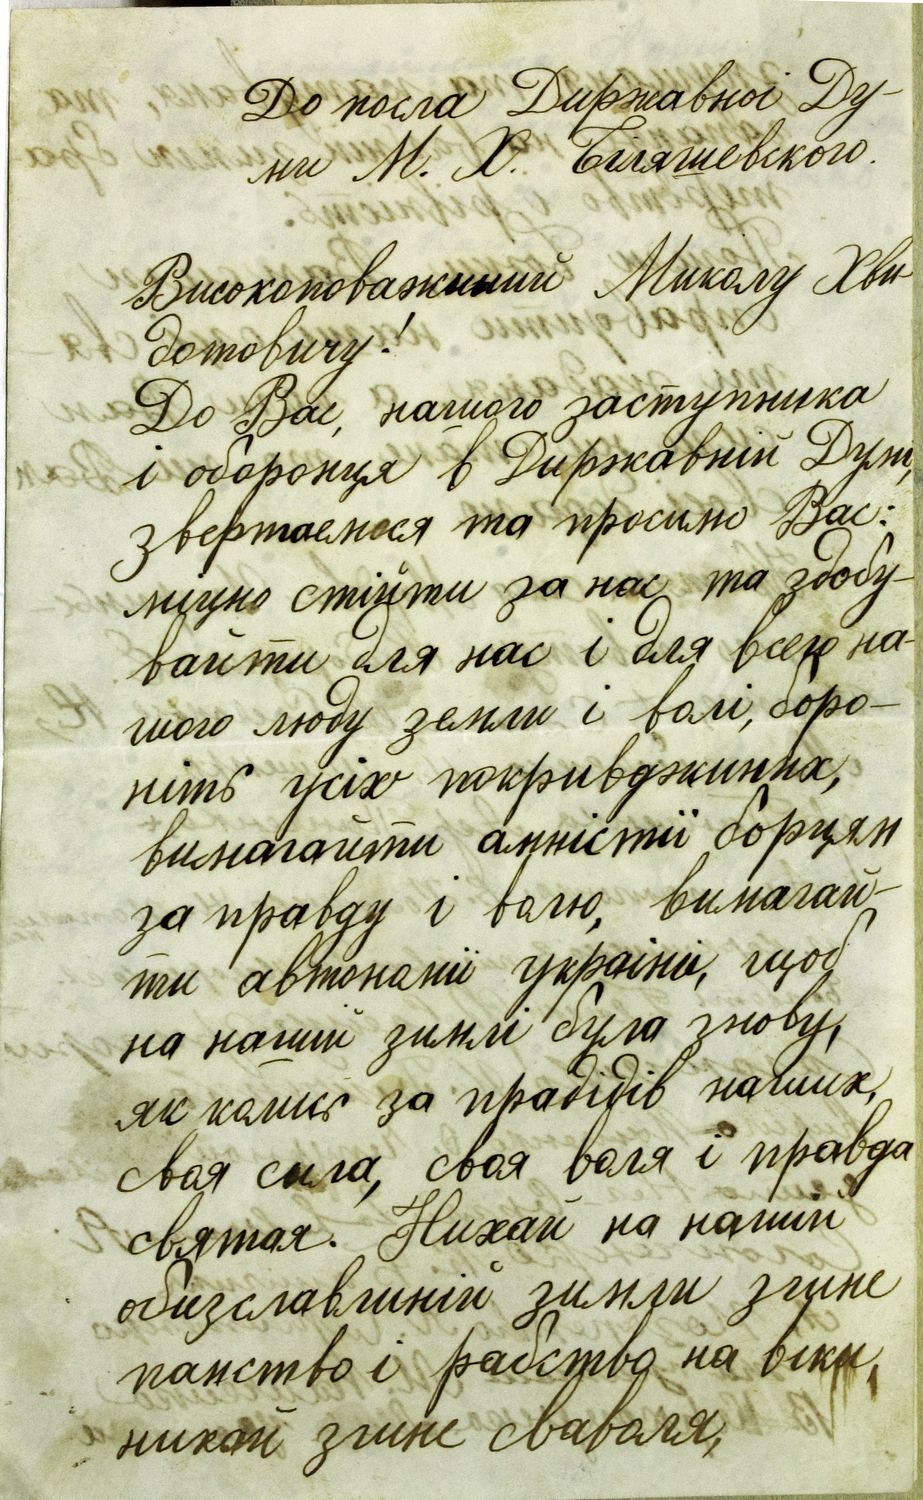 До посла Диржавноі Ду-
ми М. Х. Біляшевского.
Високоповажиний Миколу Хви
дотовичу!
До Вас, нашого заступника
і оборонця в Диржавній Думі,
звертаємося та просимо Вас:
міцно стійти за нас та здобу-
вайти для нас і для всего на-
шого люду земли і волі, боро-
ніть усіх покривджиних,
вимагайти амністіï борцям
за правду і волю, вимагай-
ти автономіï украіні, щоб
на наший зимлі була знову,
як колись за прадідів наших,
своя сила, своя воля і правда
святая. Нихай на наший
обизславлиній зимли згине
панство і рабство на віки,
нихай згине сваволя,